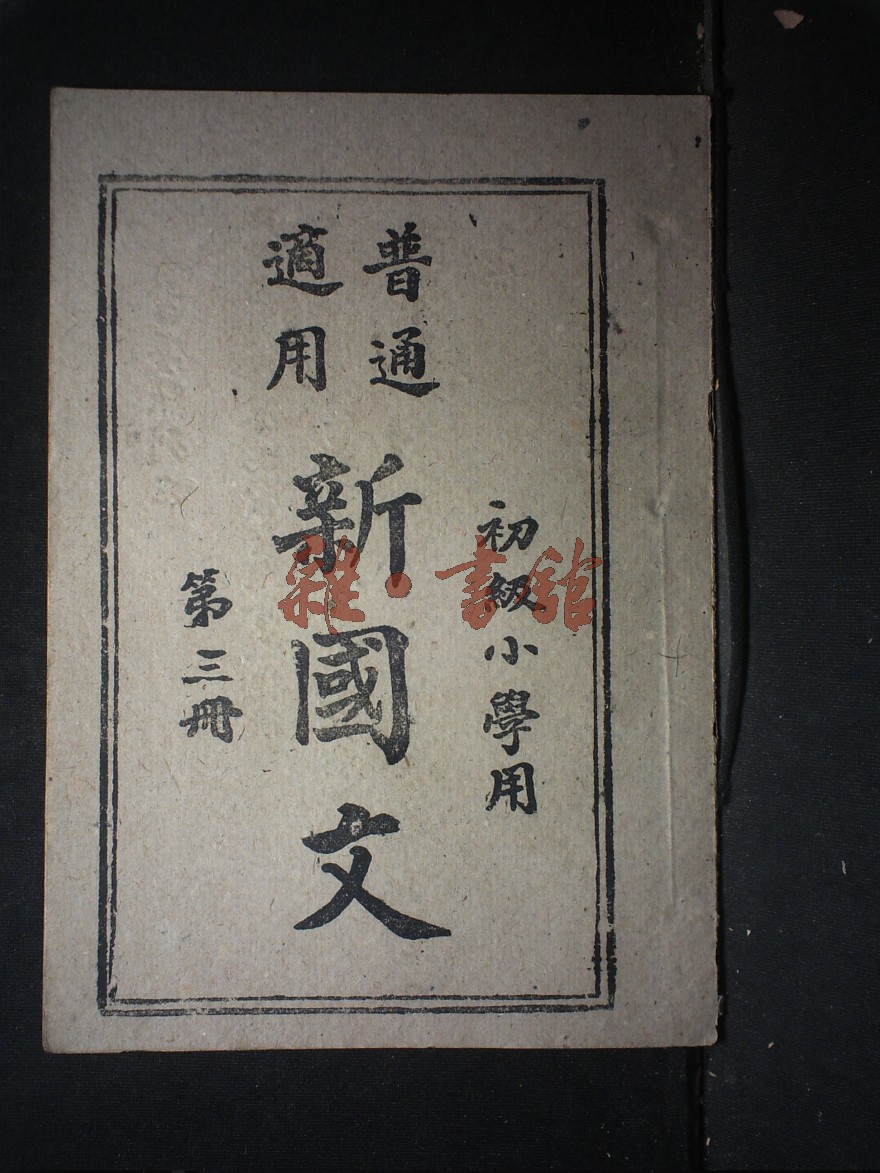 初級小學用
普通
適用
新國文
第三冊
雜·書館